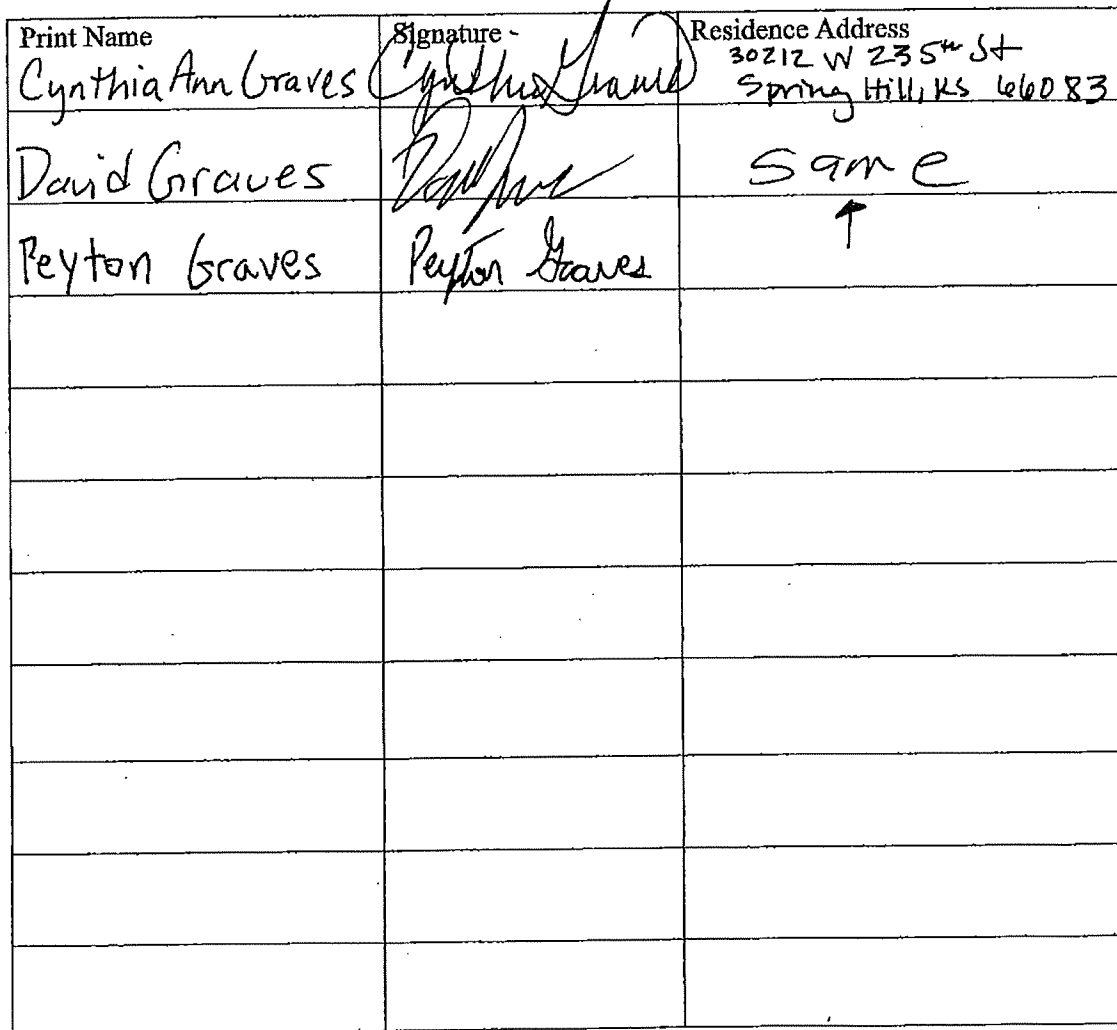 Print Name
Signature -
Residence Address
Cynthia Ann Graves
Cynthia Graves
30212 W 235th St
Spring Hill, KS 66083
David Graves
same
Peyton Graves
Peyton Graves